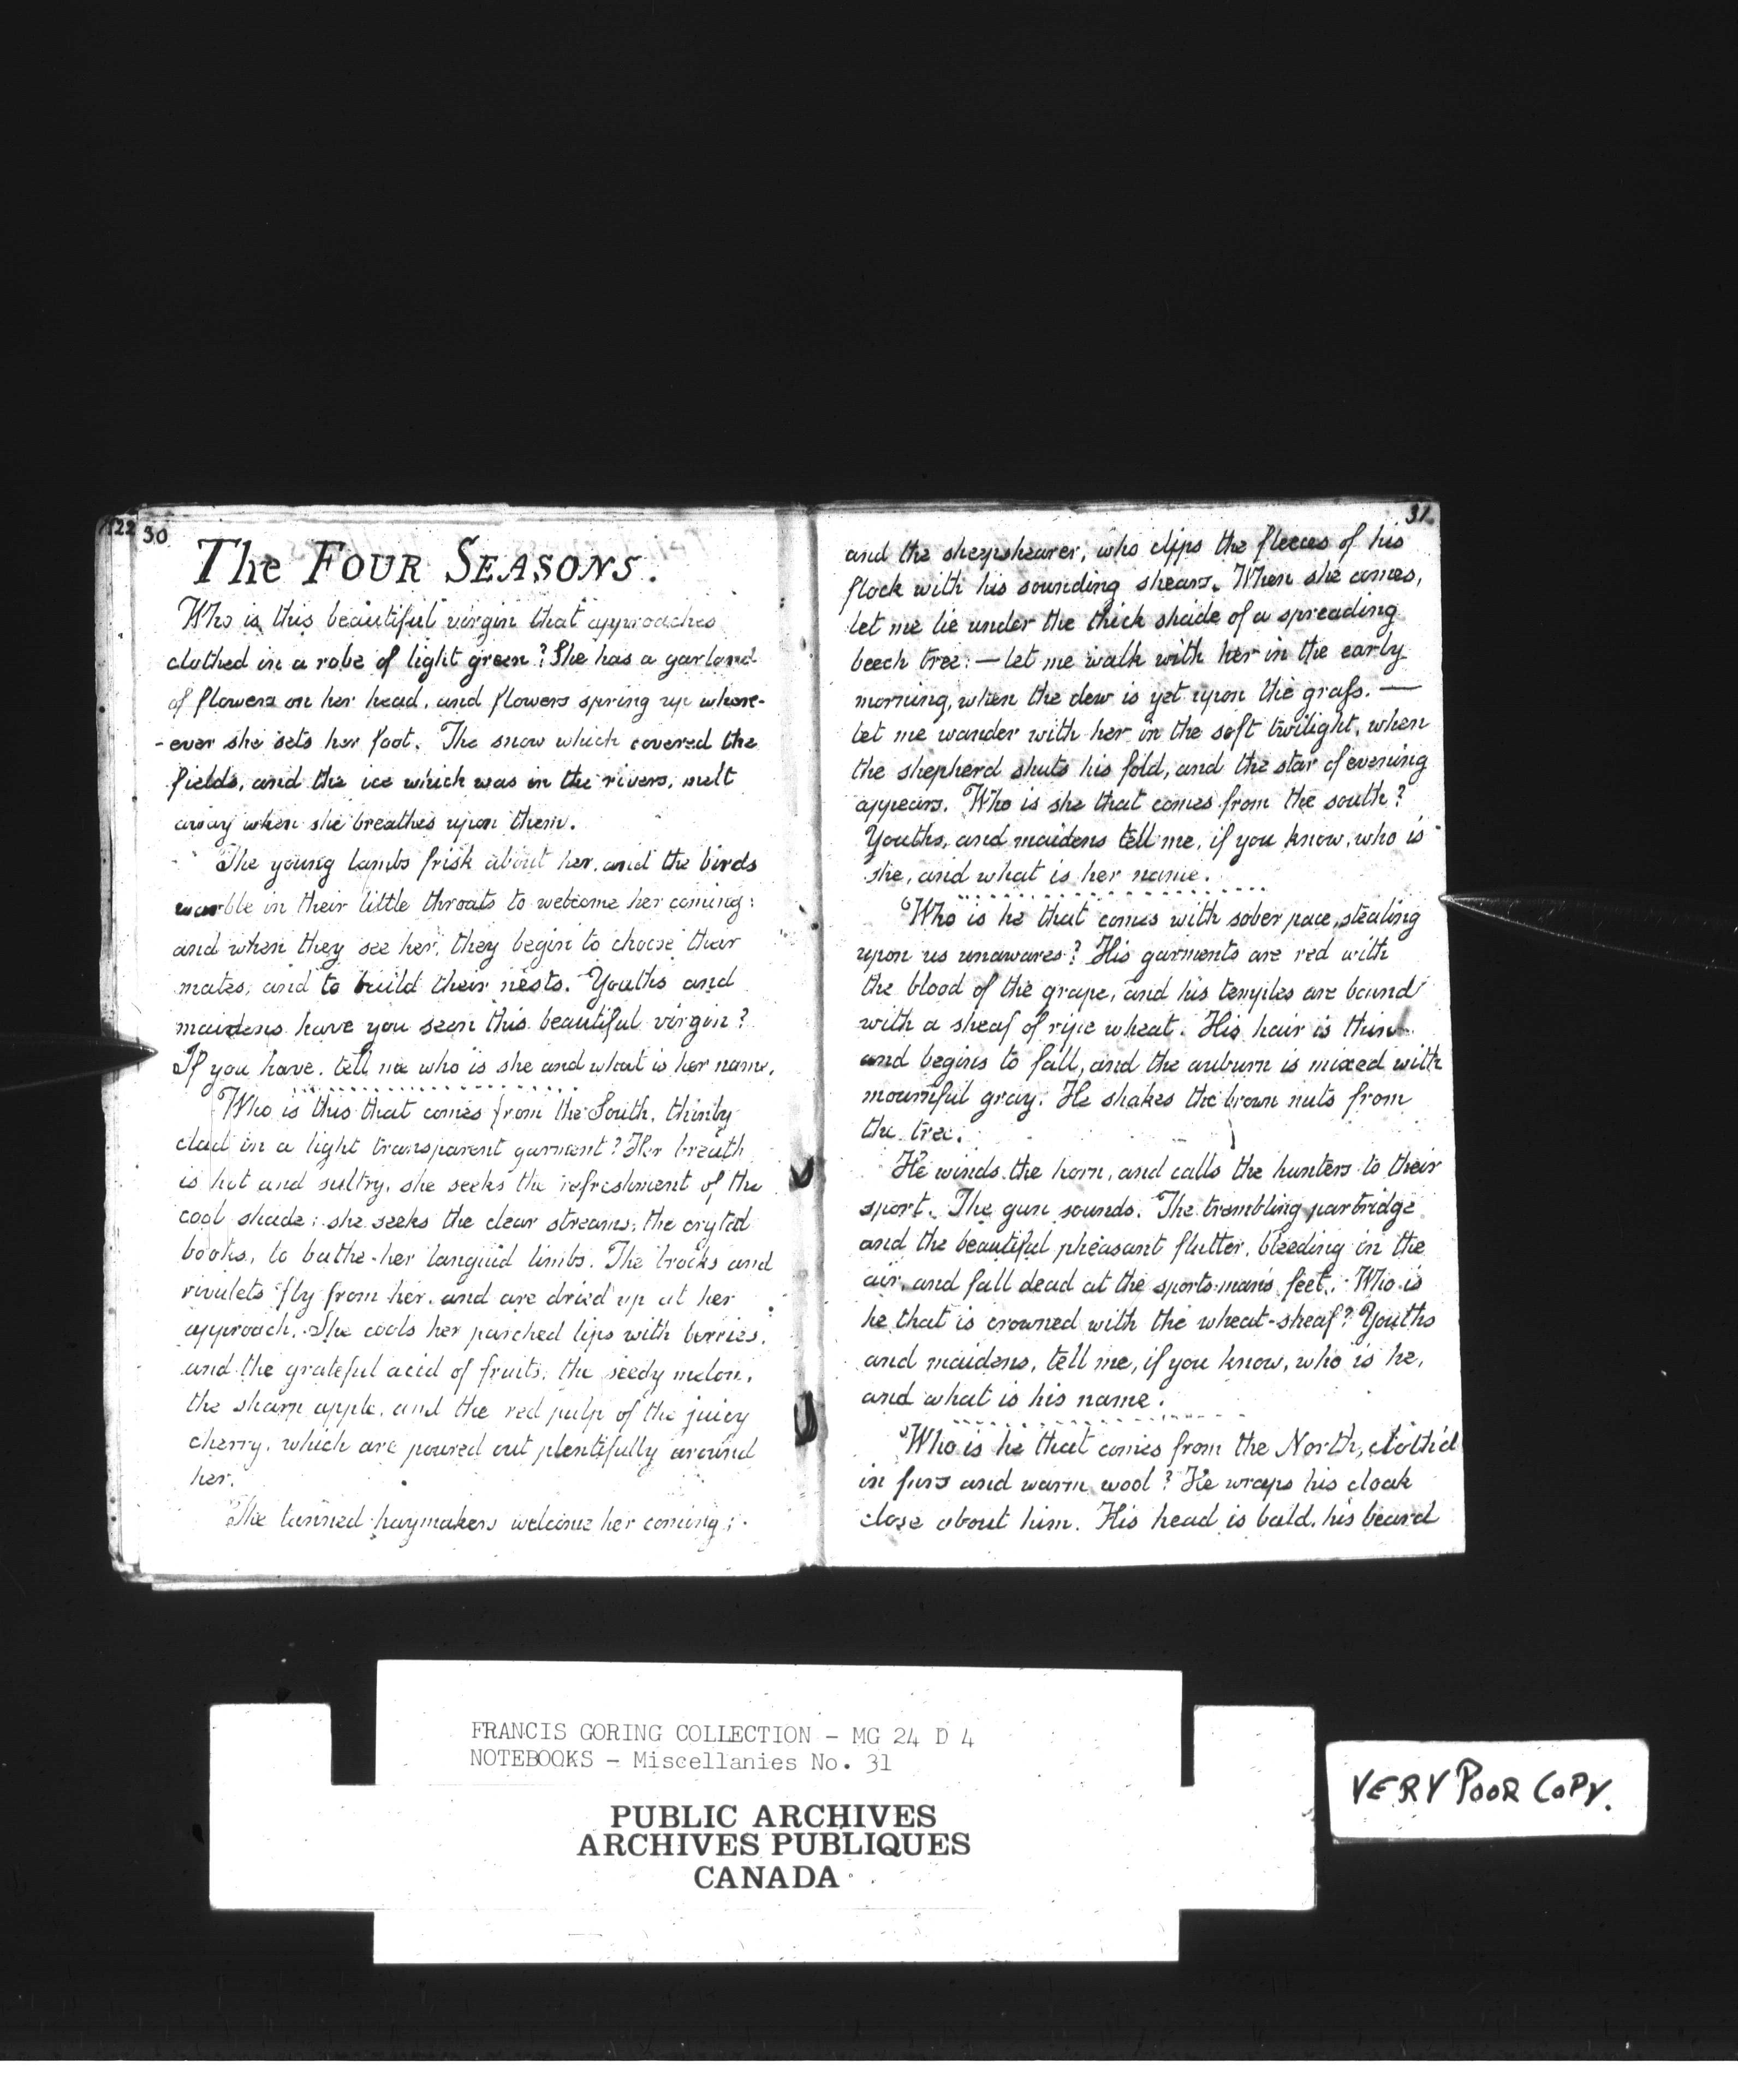 22 30
The FOUR SEASONS.
Who is this beautiful virgin that approaches
clothed in a robe of light green? She has a garland
of flowers on her head, and flowers spring up where-
-ever she sets her foot. The snow which covered the
fields, and the ice which was in the rivers, melt
away when she breathes upon them.
The young lambs frisk about her, and the birds
warble in their little throats to welcome her coming:
and when they see her, they begin to choose their
mates, and to build their nests. Youths and
maidens have you seen this beautiful virgin?
If you have, tell me who is she and what is her name.
Who is this that comes from the South, thinly
clad in a light transparent garment? Her breath
is hot and sultry, she seeks the refreshment of the
cool shade; she seeks the clear streams, the crystal
books, to bathe her languid limbs. The brooks and
rivulets fly from her, and are dried up at her
approach. She cools her parched lips with berries,
and the grateful acid of fruits; the seedy melon,
the sharp apple, and the red pulp of the juicy
cherry, which are poured out plentifully around
her.
The tanned haymakers welcome her coming;
31.
and the sheepshearer, who clips the fleeces of his
flock with his sounding shears. When she comes,
let me lie under the thick shade of a spreading
beech tree: — let me walk with her in the early
morning, when the dew is yet upon the grass. —
let me wander with her in the soft twilight, when
the shepherd shuts his fold, and the star of evening
appears. Who is she that comes from the south?
Youths, and maidens tell me, if you know, who is
she, and what is her name.
Who is he that comes with sober pace, stealing
upon us unawares? His garments are red with
the blood of the grape, and his temples are bound
with a sheaf of ripe wheat. His hair is thin
and begins to fall, and the auburn is mixed with
mournful gray. He shakes the brown nuts from
the tree.
He winds the horn, and calls the hunters to their
sport. The gun sounds. The trembling partridge
and the beautiful pheasant flutter, bleeding in the
air, and fall dead at the sports-man's feet. Who is
he that is crowned with the wheat-sheaf? Youths
and maidens, tell me, if you know, who is he,
and what is his name.
Who is he that comes from the North, cloth'd
in furs and warm wool? He wraps his cloak
close about him. His head is bald, his beard
FRANCIS GORING COLLECTION - MG 24 D 4
NOTEBOOKS - Miscellanies No. 31
PUBLIC ARCHIVES
ARCHIVES PUBLIQUES
CANADA
VERY POOR COPY.